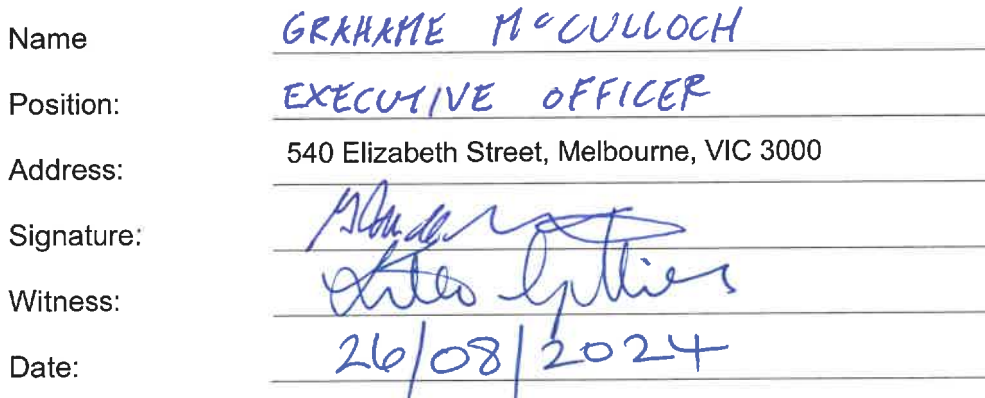 Name GRAHAME McCULLOCH
Position: EXECUTIVE OFFICER
Address: 540 Elizabeth Street, Melbourne, VIC 3000
Signature:
Witness: Gillies
Date: 26/08/2024